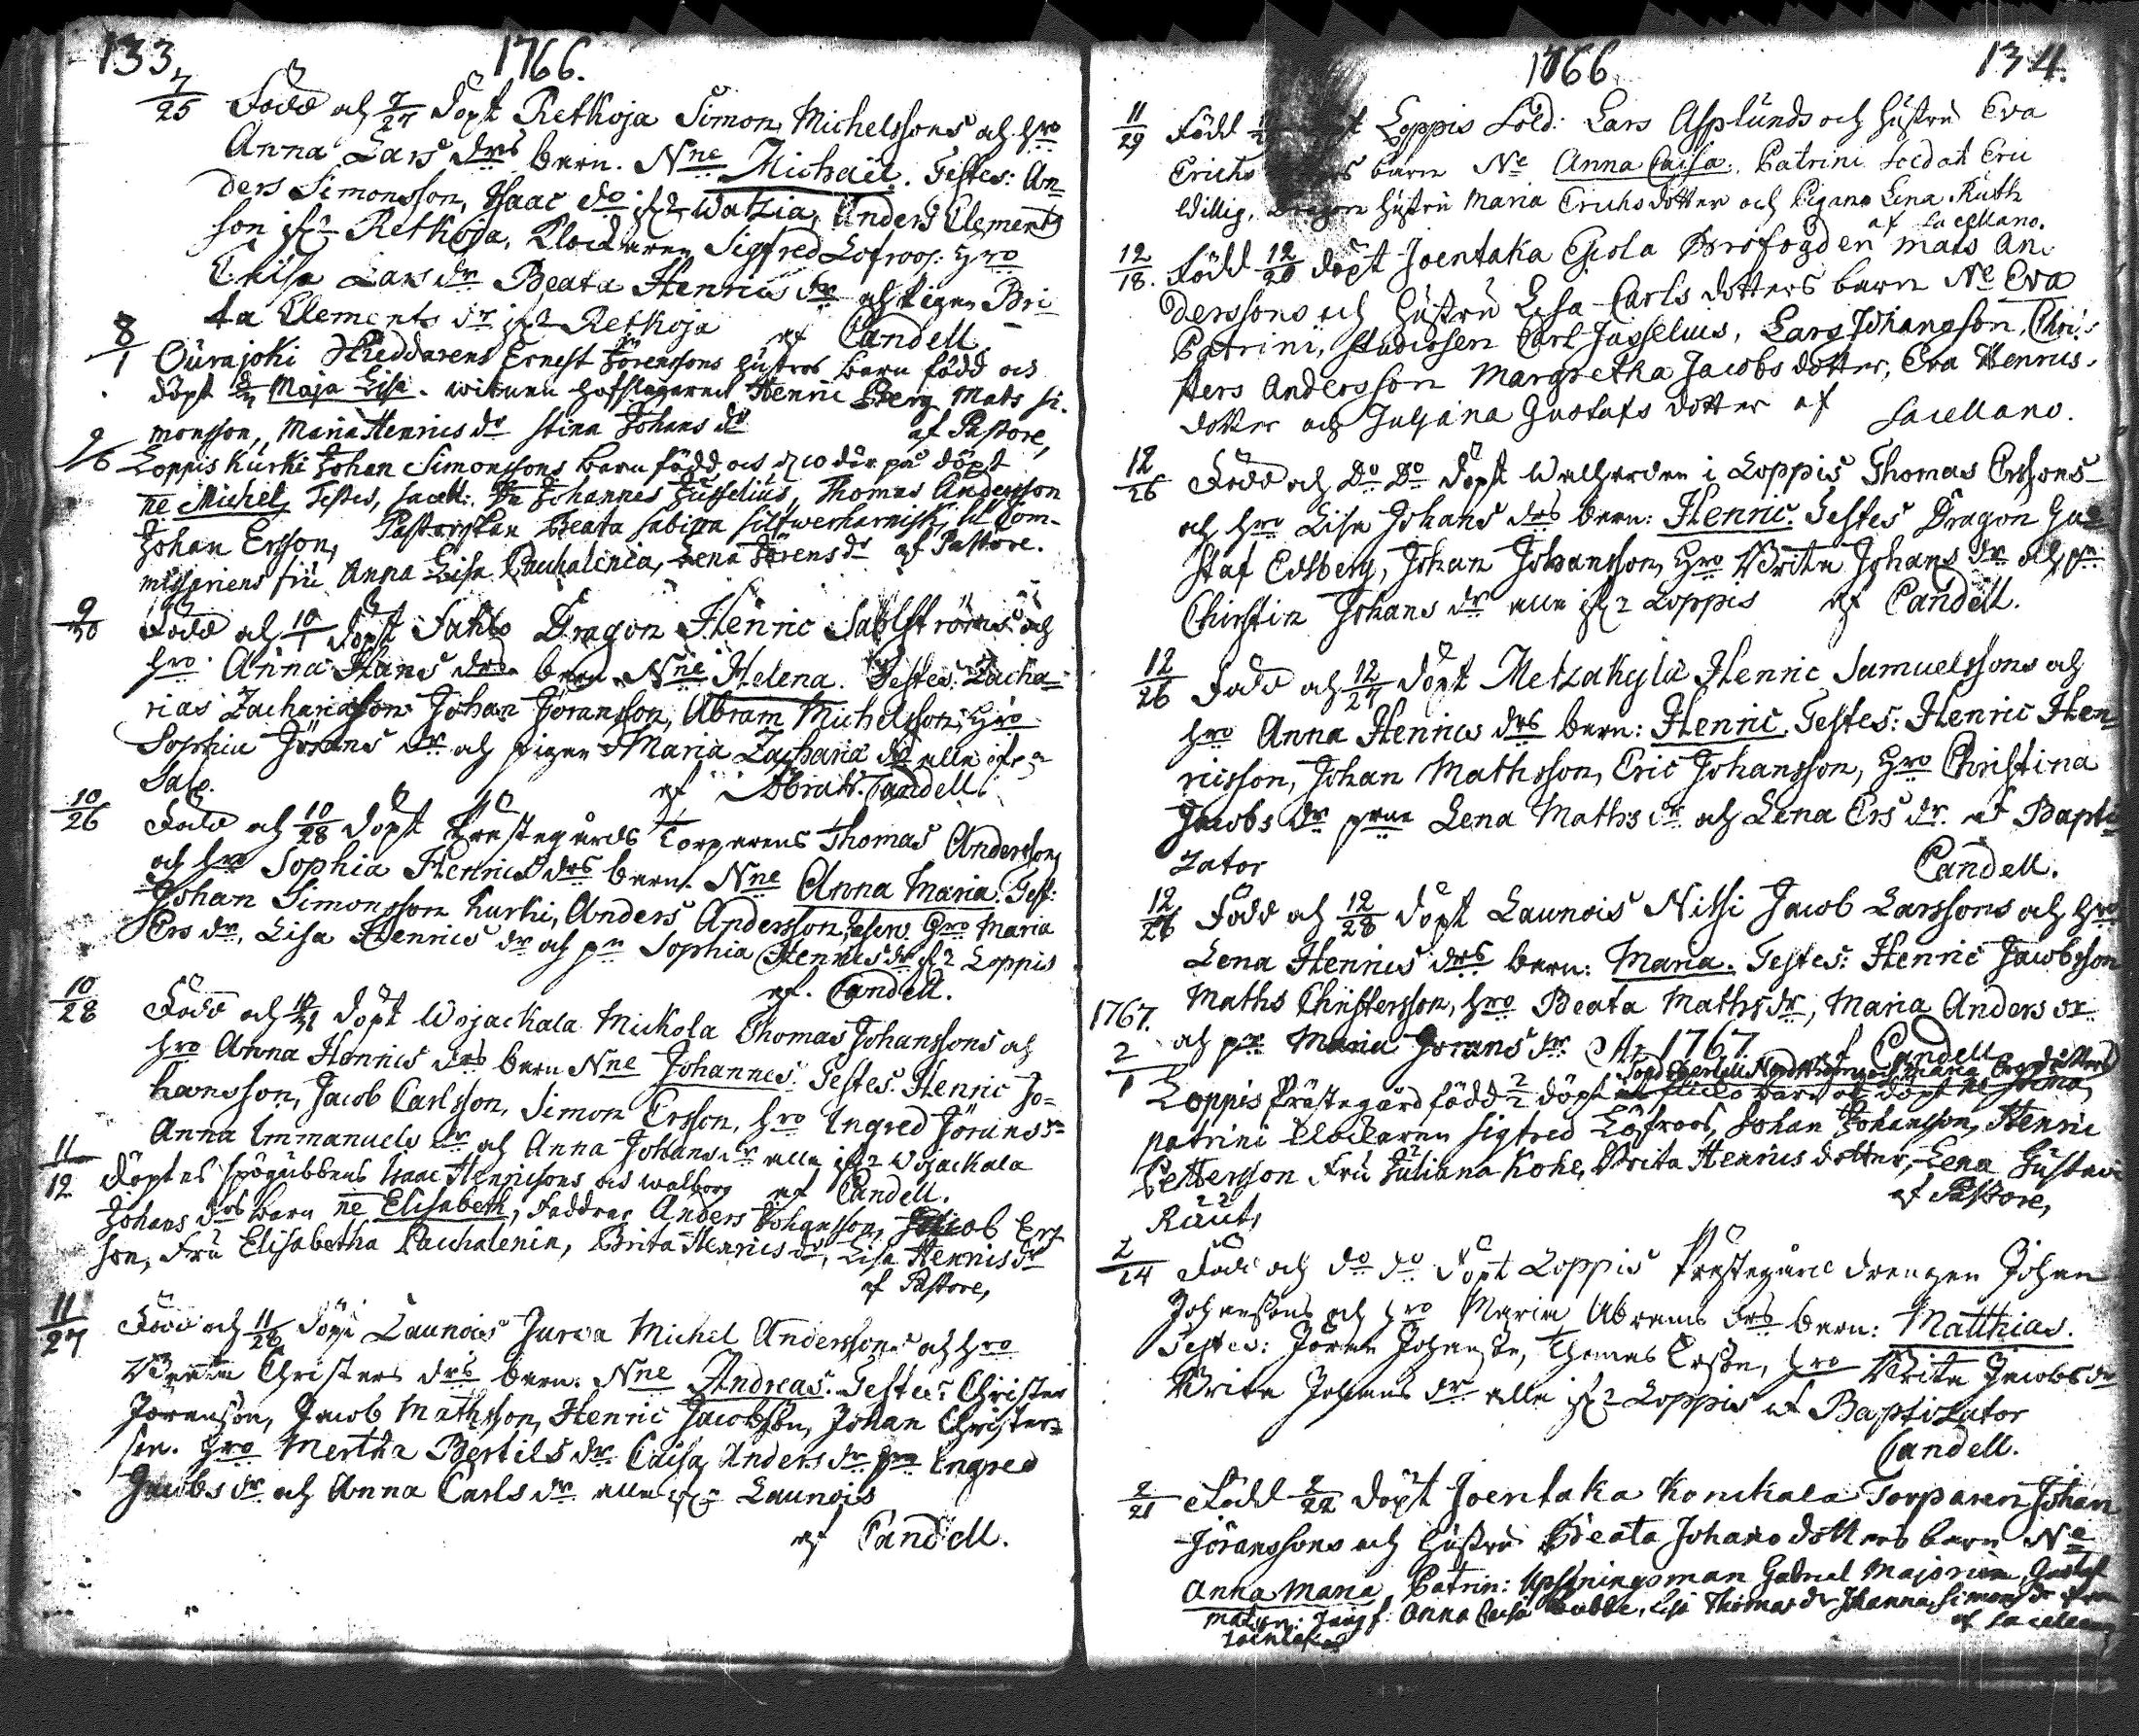 133. 1766.
7/25 Född och 7/27 döpt Retkoja Simon Michelssons och hro
Anna Lars drs barn. Nne Michaël. Testes: An=
ders Simonsson, Isaac do ifr. Watzia, Anders Clements
son ifr. Retkoja, Klockaren Sigfred Löfroos. Hro
Caisa Lars dr Beata Henrics dr och Pigan Bri
ta Clements dr ifr. Retkoja af Candell
8/1 Ourajoki Skeddarens Ernest Jörenssons hustros barn född och
döpt Maja Lisa. witnen hofslagaren Henric Berg Mats Si-
monsson, Maria Henrics dr Stina Johans dr af Pastore,
9/6 Loppis Kurki Johan Simonssons barn född och döpt
ne Michel, Testes, Sacell: Johannes Jusselius, Thomas Andersson
Johan Ersson, Pastorskan Beata Sabina Silfwerharnisk, Com-
missariens fru Anna Lisa Pauhalenia, Lena Jörens dr af Pastore.
9/30 Född och 10/1 döpt Sahlo Dragon Henric Sahlströms och
hro Anna Hans drs barn Nne Helena. Testes: Zacha=
rias Zachariasson Johan Joransson, Abram Michelsson, Hro
Sophia Jörans dr och pigan Maria Zacharia dr alla ifr.
Salo. af Abrah. Candell.
10/26 Född och 10/28 döpt Prestegårds Torparens Thomas Anderssons
och hro Sophia Henrics drs barn. Nne Anna Maria. Test:
Johan Simonsson Kurki, Anders Andersson, Hro Maria
Ers dr, Lisa Henrics dr och pn Sophia Henrics dr ifr Loppis
af. Candell.
10/28 Född och 10/31 döpt Wojackala Mickola Thomas Johanssons och
hro Anna Henrics drs barn Nne Johannes. Testes. Henric Jo=
hansson, Jacob Carlsson, Simon Ersson, hro Ingred Jörans dr
Anna Immanuels dr och Anna Johans dr alla ifr Wojackala
11/12 Döptes Spögubbens Isaac Henricsons och Walborg af Candell.
Johans drs barn ne Elisabeth, Faddrar Anders Johansson, Jacob Ers
son, Fru Elisabetha Pauhalenia, Brita Henrics dr, Lisa Henrics dr
af Pastore,
11/27 Född och 11/28 döpt Launois Jurva Michel Anderssons och hro
Christers drs barn: Nne Andreas. Testes: Christer
Joransson, Jacob Mathsson, Henric Jacobsson, Johan Christers=
son. Hro Mertha Bertils dr Caisa Anders dr Ingred
Jacobs dr och Anna Carls dr alla ifr Launois
af Candell.
1766 134.
11/29 Född Loppis Sold: Lars Asplunds och hustru Eva
Erichs barn Ne Anna Caisa. Patrini Soldat Eric
Willig, hustru Maria Erichsdotter och Pigan Lena Ruth
af Sacellano.
12/18. Född 12/20 döpt Joentaka Eskola Brofogden Mats An-
derssons och hustru Lisa Carls dotters barn Ne Eva
Patrini, Studiosen Carl Jusselius, Lars Johansson, Chri-
sters Andersson Margretha Jacobs dotter, Eva Henrics
dotter och Juljana Gustafs dotter af Sacellano.
12/26 Född och Do Do döpt i Loppis Thomas Erssons
och hro Lisa Johans drs barn: Henric. Testes Dragon Gu=
staf Edsberg, Johan Johansson, Hro Brita Johans dr och pn
Chirstin Johans dr alla ifr Loppis af Candell.
12/26 Född och 12/27 döpt Metzakylä Henric Samuelssons och
hro Anna Henrics drs barn: Henric. Testes: Henric Hen=
ricsson, Johan Mathsson, Eric Johansson, Hro Christina
Jacobs dr Lena Maths dr och Lena Ers dr af Bapti
zator Candell.
12/28 Född och 12/28 döpt Launois Nitsi Jacob Larssons och hro
Lena Henrics drs barn: Maria. Testes: Henric Jacobsson
Maths Christersson, hro Beata Maths dr, Maria Anders dr
1767. och pn Maria Jorans dr Ao 1767 af Candell
2/1 Loppis Prästegård född 2/2 döpt
patrini klockaren Sigfred Löfroos, Johan Johansson, Henric
Pettersson Fru Juliana Kohe, Brita Henrics dotter, Lena Gustava
Räut, af Pastore,
2/14 Född och do do döpt Loppis Prestegård drengen Johan
Johanssons och hro Maria Abrams drs barn: Matthias.
Testes: Joran Johansson, Thomas Ersson, hro Brita Jacobs dr
Brita Johans dr alla ifr Loppis af Baptizator
Candell.
2/21 Född 2/22 döpt Joentaka Konikala Torparen Johan
Jöranssons och hustru Beata Johans dotters barn Ne
Anna Maria, Patrin: Upsyningsman Gabriel Gustaf
Jungf. Anna Caisa Lisa Thomas dr Johanna Simons dr
af Sacellano